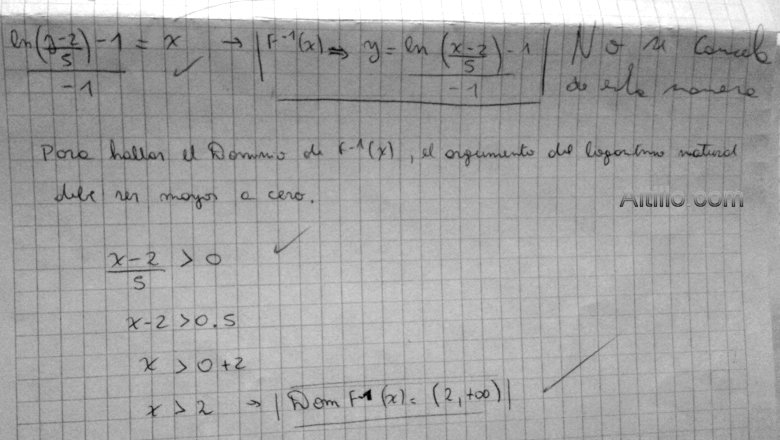 ln((y-2)/5) - 1 / -1 = x → | F⁻¹(x) ⇒ y = ln((x-2)/5) - 1 / -1 | No se cancela
de esta manera
Para hallar el Dominio de F⁻¹(x), el argumento del logaritmo natural
debe ser mayor a cero.
Altillo.com
(x-2)/5 > 0
x-2 > 0.5
x > 0+2
x > 2 → | Dom F⁻¹(x) = (2, +∞) |